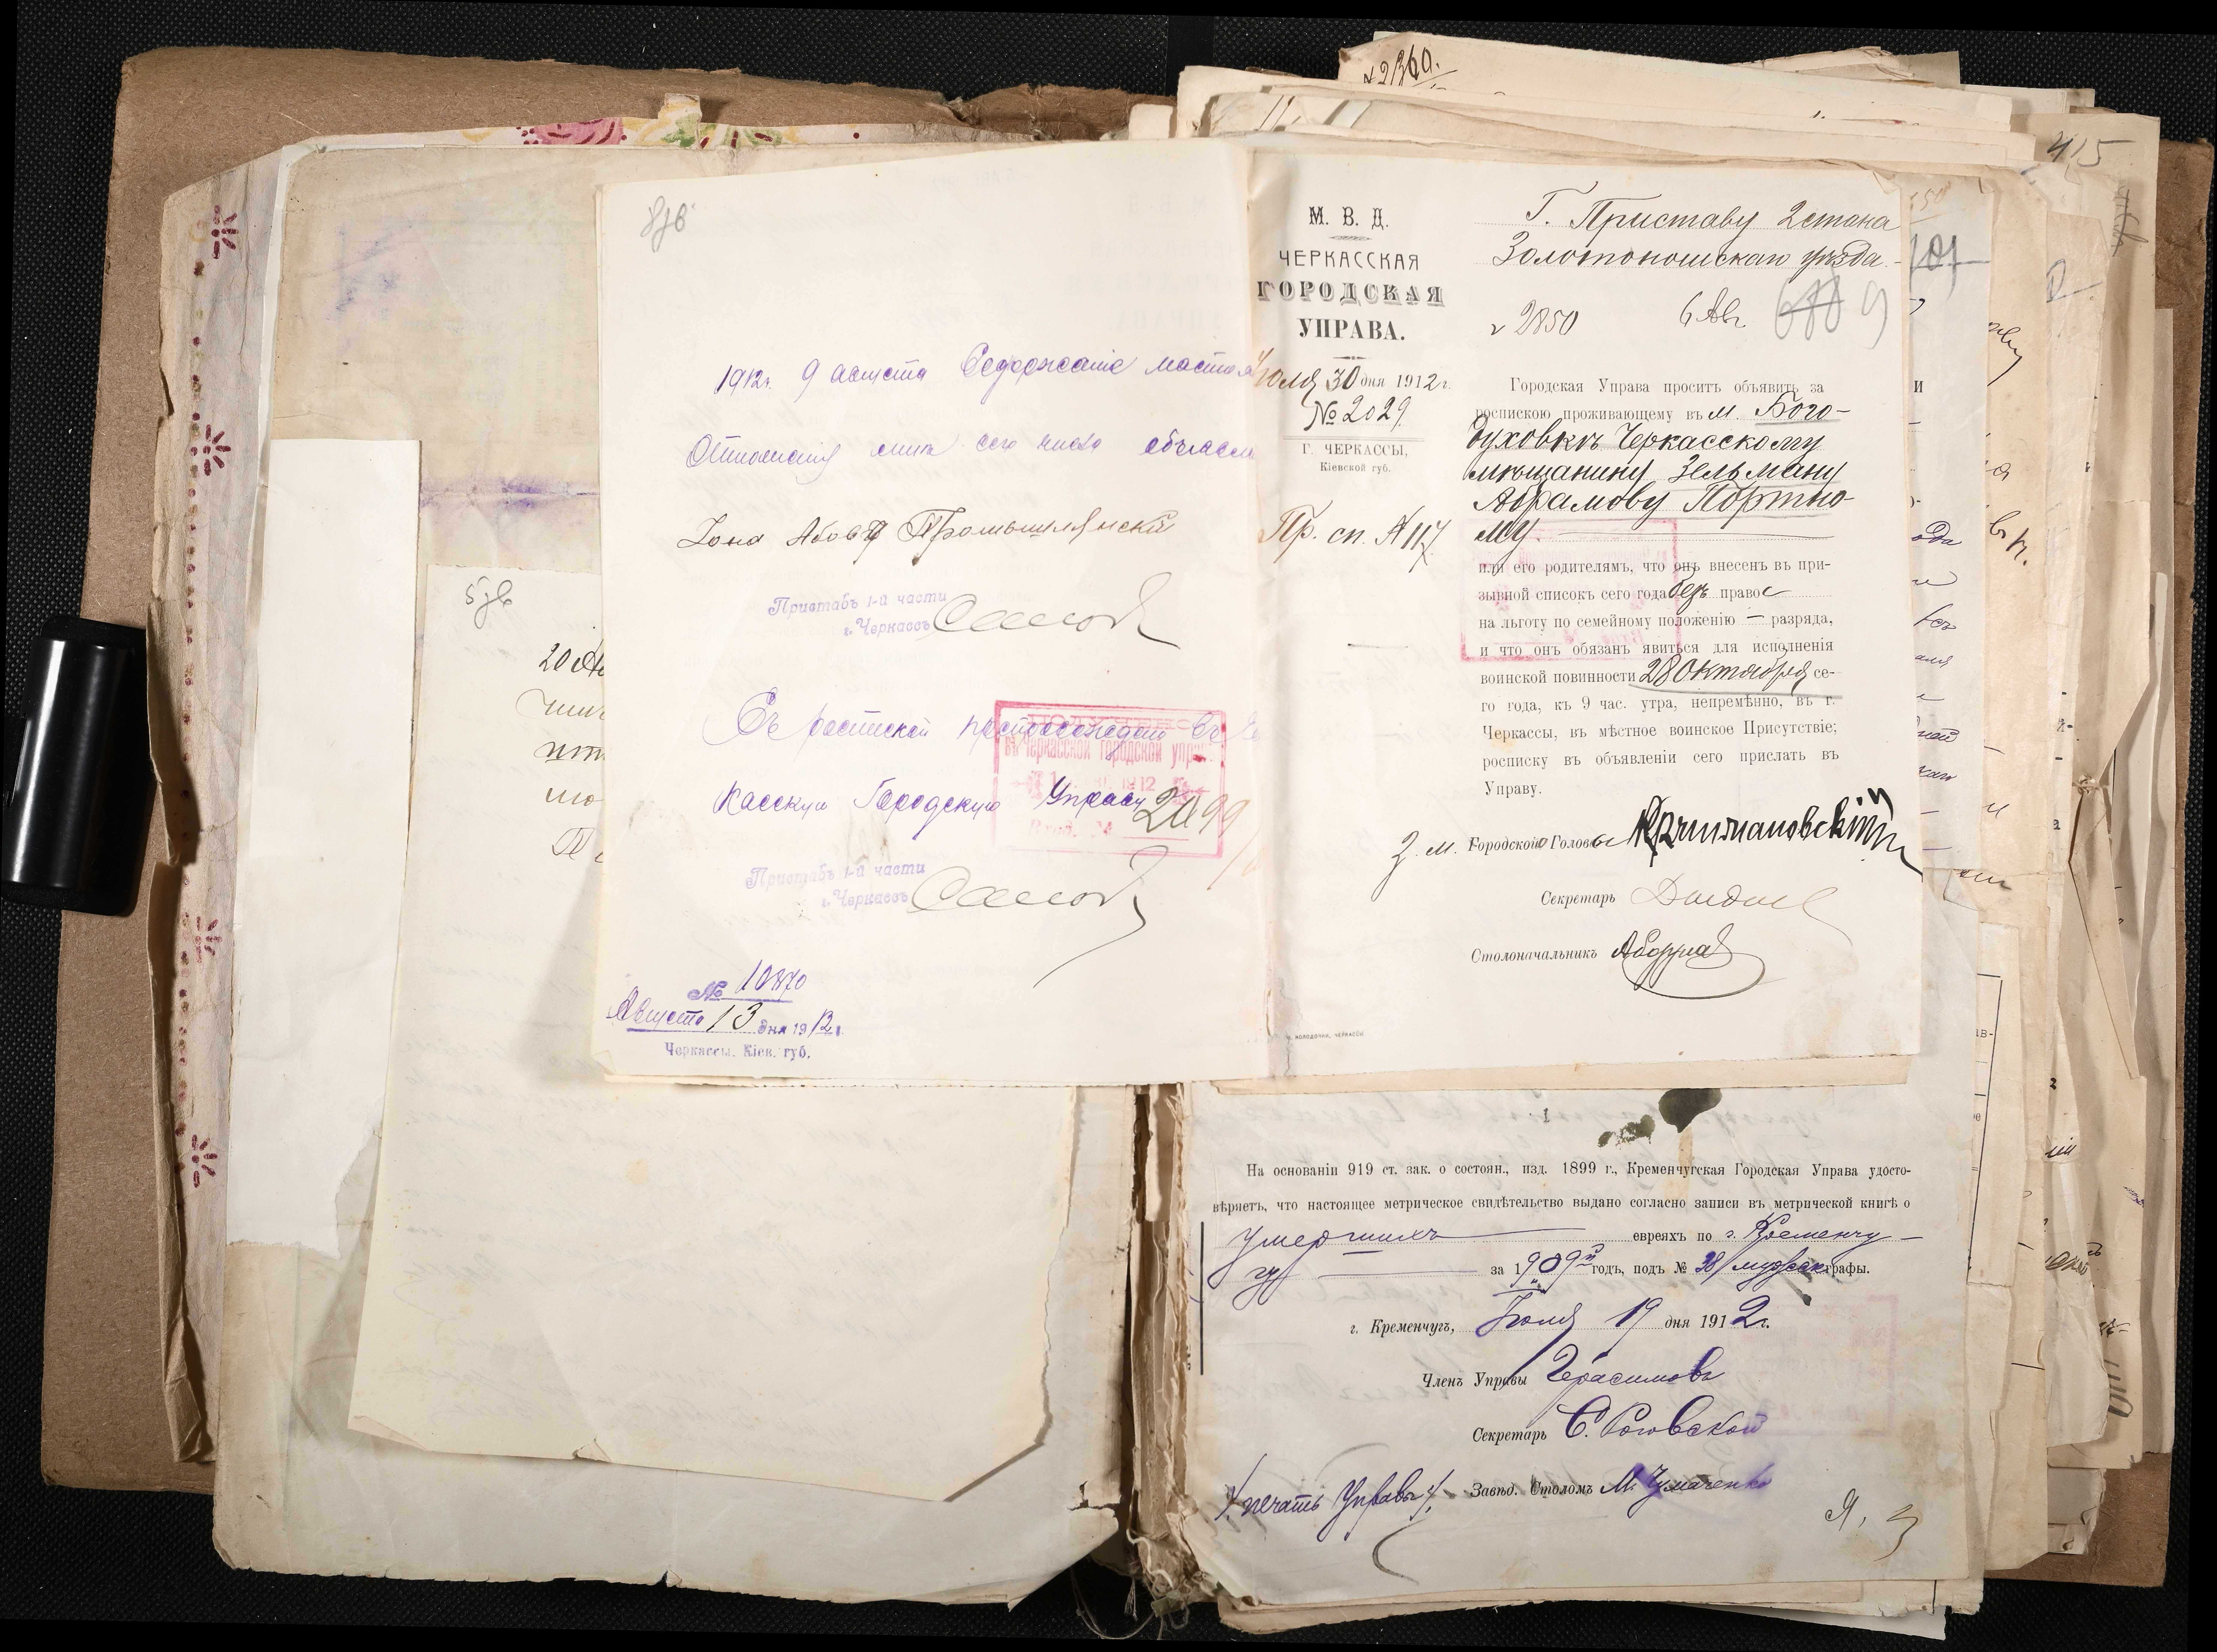 1912г. 9 августа Содержаніе настоя
Отношенія мнѣ сего числа объявле
Іона Абовъ Промышлянскій
Приставъ 1-й части
г. Черкассъ
Съ роспиской препровождаю въ Чер
касскую Городскую Управу
въ Черкасской Городской упр
1912
Вход. № 2099
Приставъ 1-й части
г. Черкассъ
№ 10870
Августа 13 дня 1912 г.
Черкассы, Кіев. губ.
20
М. В. Д.
ЧЕРКАССКАЯ
ГОРОДСКАЯ
УПРАВА.
Іюля 30 дня 1912 г.
№ 2029.
Г. ЧЕРКАССЫ,
Кіевской губ.
Пр. сп. № 117
Г. Приставу 2 стана
Золотоношскаго уѣзда
2850 6 Авг. 9
Городская Управа проситъ объявить за
роспискою проживающему въ м. Бого-
духовкѣ Черкасскому
мѣщанину Зельману
Абрамову Портно-
му
или его родителямъ, что онъ внесенъ въ при-
зывной списокъ сего года безъ права
на льготу по семейному положенію — разряда,
и что онъ обязанъ явиться для исполненія
воинской повинности 28 Октября се-
го года, къ 9 час. утра, непремѣнно, въ г.
Черкассы, въ мѣстное воинское Присутствіе;
росписку въ объявленіи сего прислать въ
Управу.
З. м. Городского Головы
Секретарь
Столоначальникъ
МОЛОДОЧКИ, ЧЕРКАССЫ
2360.
415
1
На основаніи 919 ст. зак. о состоян., изд. 1899 г., Кременчугская Городская Управа удосто-
вѣряетъ, что настоящее метрическое свидѣтельство выдано согласно записи въ метрической книгѣ о
умершихъ евреяхъ по г. Кременчу-
гу за 1909й годъ, подъ № 28 мужск. графы.
г. Кременчугъ, Іюля 19 дня 1912 г.
Членъ Управы Герасимовъ
Секретарь С. Роговской
/. печать Управы ./. Завѣд. Столомъ М. Чумаченко